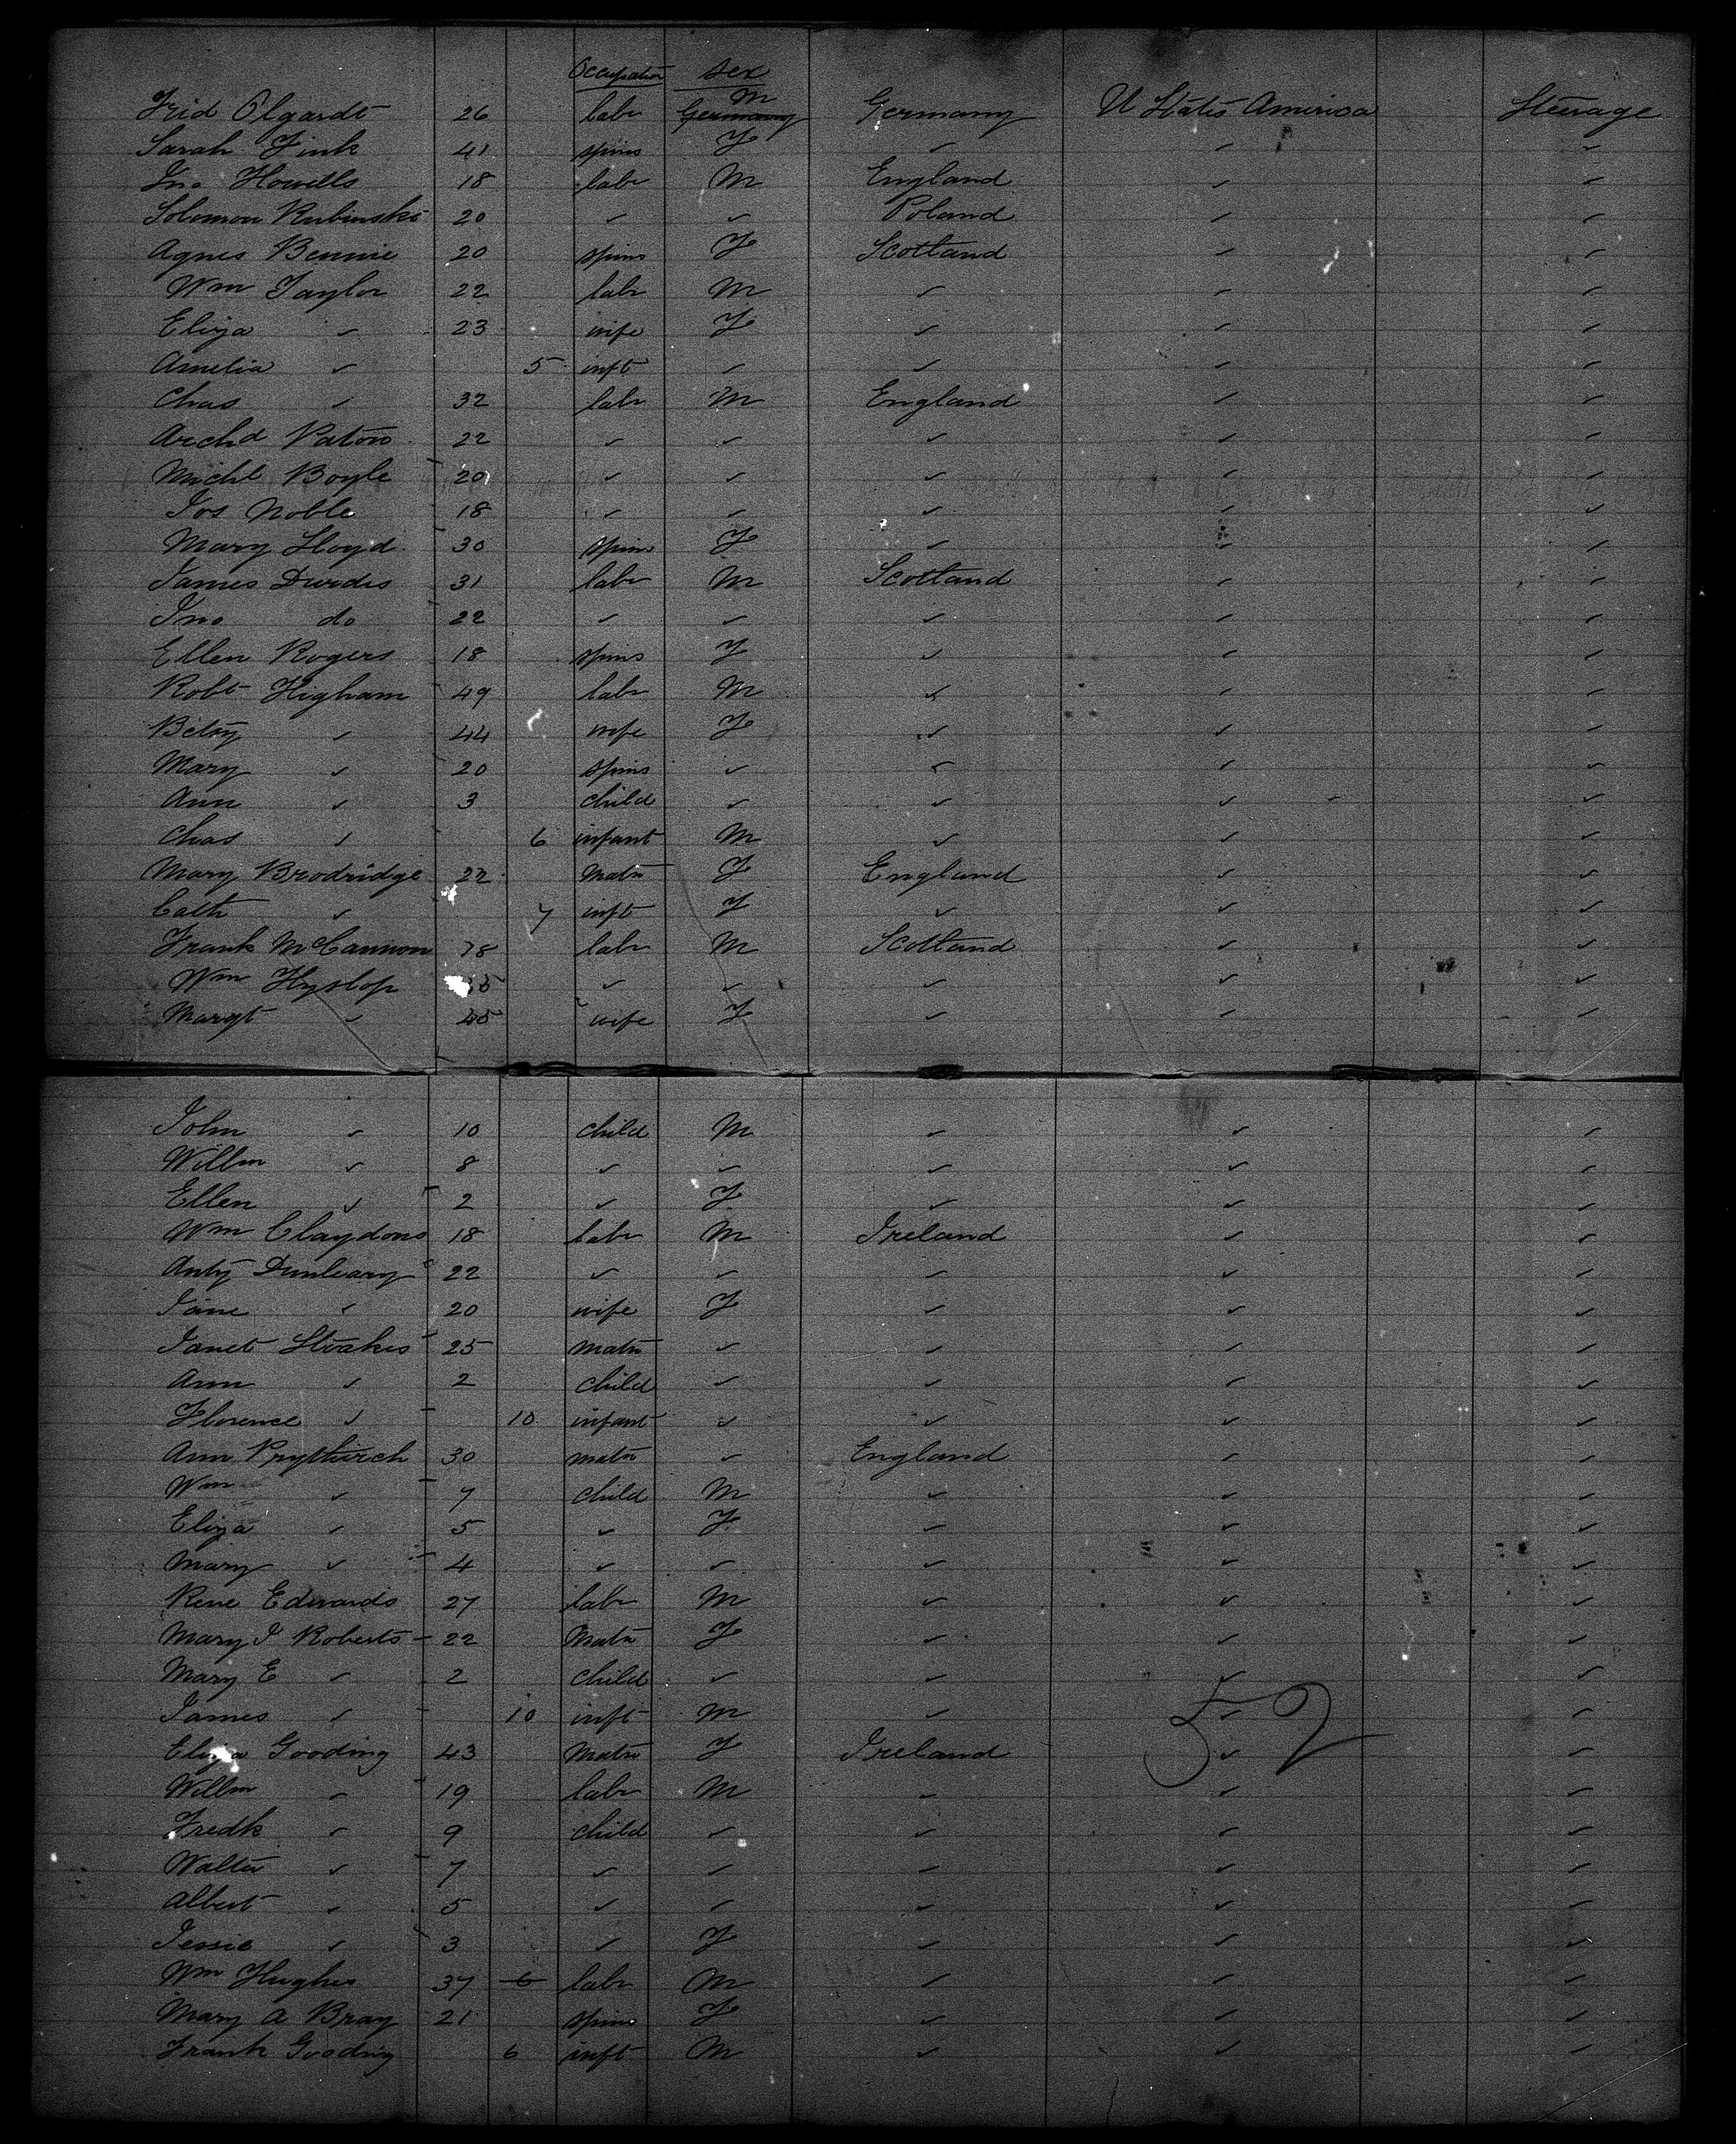 Occupation Sex
Frid Olgardt 26 labr M Germany Germany U States America Steerage
Sarah Fink 41 spins F ✓ ✓ ✓
Jno Howells 18 labr M England ✓ ✓
Solomon Rubinski 20 ✓ ✓ Poland ✓ ✓
Agnes Bennie 20 spins F Scotland ✓ ✓
Wm Taylor 22 labr M ✓ ✓ ✓
Eliza ✓ 23 wife F ✓ ✓ ✓
Amelia ✓ 5 inft ✓ ✓ ✓ ✓
Chas ✓ 32 labr M England ✓ ✓
Archd Paton 22 ✓ ✓ ✓ ✓ ✓
Michl Boyle 20 ✓ ✓ ✓ ✓ ✓
Jos Noble 18 ✓ ✓ ✓ ✓ ✓
Mary Lloyd 30 spins F ✓ ✓ ✓
James 31 labr M Scotland ✓ ✓
Jno do 22 ✓ ✓ ✓ ✓ ✓
Ellen Rogers 18 spins F ✓ ✓ ✓
Robt Higham 49 labr M ✓ ✓ ✓
Betsy ✓ 44 wife F ✓ ✓ ✓
Mary ✓ 20 spins ✓ ✓ ✓ ✓
Ann ✓ 3 child ✓ ✓ ✓ ✓
Chas ✓ 6 infant M ✓ ✓ ✓
Mary Brodridge 22 matn F England ✓ ✓
Cath ✓ 7 inft F ✓ ✓ ✓
Frank McCannon labr M Scotland ✓ ✓
Wm Hyslop ✓ ✓ ✓ ✓ ✓
Margt ✓ 45 wife F ✓ ✓ ✓
John ✓ 10 child M ✓ ✓ ✓
Willm ✓ 8 ✓ ✓ ✓ ✓ ✓
Ellen ✓ 2 ✓ F ✓ ✓ ✓
Wm Claydons 18 labr M Ireland ✓ ✓
Anty Dunleavy 22 ✓ ✓ ✓ ✓ ✓
Jane ✓ 20 wife F ✓ ✓ ✓
Janet Stoakes 25 matn ✓ ✓ ✓ ✓
Ann ✓ 2 child ✓ ✓ ✓ ✓
Florence ✓ 10 infant ✓ ✓ ✓ ✓
Ann Prytherch 30 matn ✓ England ✓ ✓
Wm ✓ 7 child M ✓ ✓ ✓
Eliza ✓ 5 ✓ F ✓ ✓ ✓
Mary ✓ 4 ✓ ✓ ✓ ✓ ✓
Rene Edwards 27 labr M ✓ ✓ ✓
Mary J Roberts 22 Matn F ✓ ✓ ✓
Mary E ✓ 2 child ✓ ✓ ✓ ✓
James ✓ 10 inft M ✓ ✓ ✓
52
Eliza Gooding 43 Matn F Ireland ✓ ✓
Willm ✓ 19 labr M ✓ ✓ ✓
Fredk ✓ 9 child ✓ ✓ ✓ ✓
Walter ✓ 7 ✓ ✓ ✓ ✓ ✓
Albert ✓ 5 ✓ ✓ ✓ ✓ ✓
Jessie ✓ 3 ✓ F ✓ ✓ ✓
Wm Hughes 37 6 labr M ✓ ✓ ✓
Mary A Bray 21 spins F ✓ ✓ ✓
Frank Gooding 6 inft M ✓ ✓ ✓